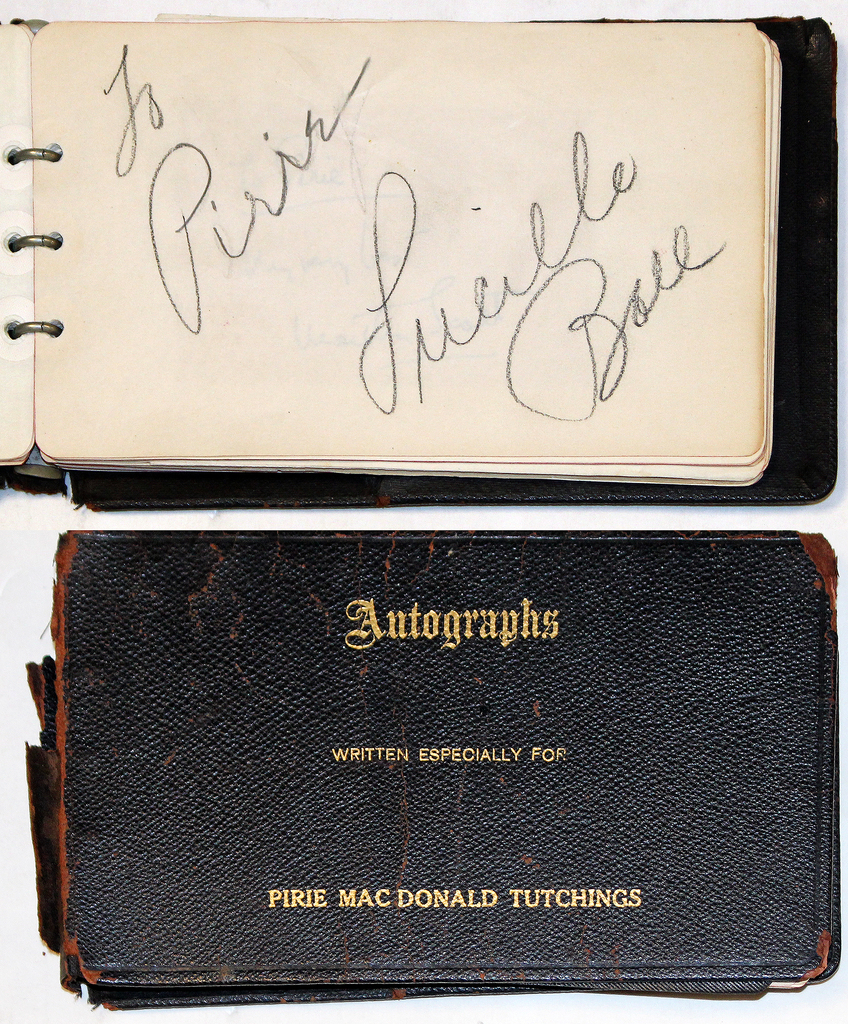 To
Pirie
Lucille
Ball
Autographs
WRITTEN ESPECIALLY FOR
PIRIE MAC DONALD TUTCHINGS